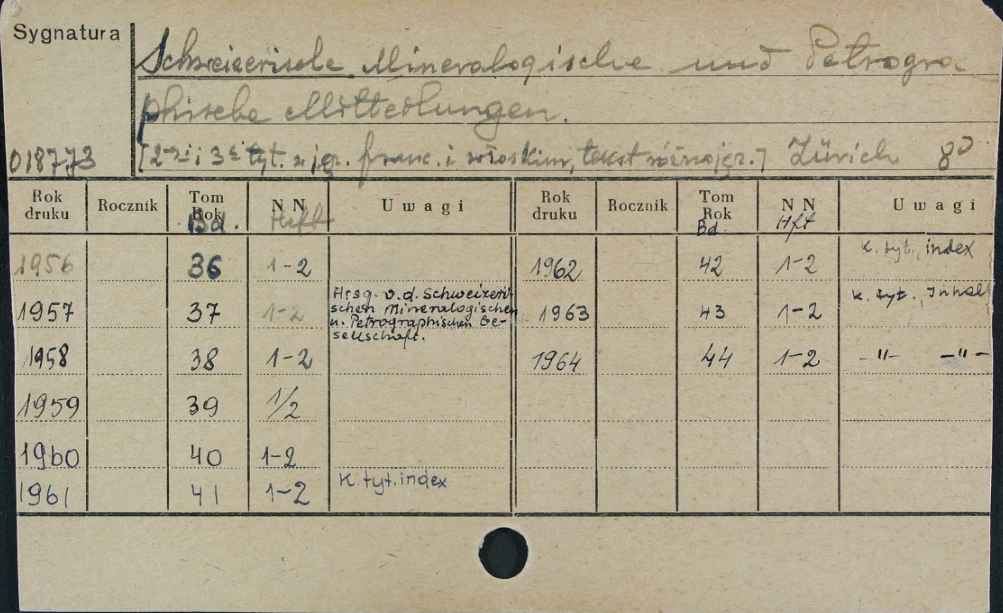 Sygnatura
Schweizerische Mineralogische und Petrogra
phische Mitteilungen.
018773 [2-gi i 3-i tyt. w jęz. franc. i włoskim, tekst różnojęz.] Zürich 8°
Rok druku Rocznik Tom Rok Bd. NN Heft Uwagi Rok druku Rocznik Tom Rok Bd. NN Hft Uwagi
1956 36 1-2 1962 42 1-2 K. tyt., index
1957 37 1-2 Hrsg. v.d. Schweizeri-
schen Mineralogischen
u. Petrographischen Ge-
sellschaft. 1963 43 1-2 K. tyt., Inhalt
1958 38 1-2 1964 44 1-2 -"- -"-
1959 39 1/2
1960 40 1-2
1961 41 1-2 K. tyt. index